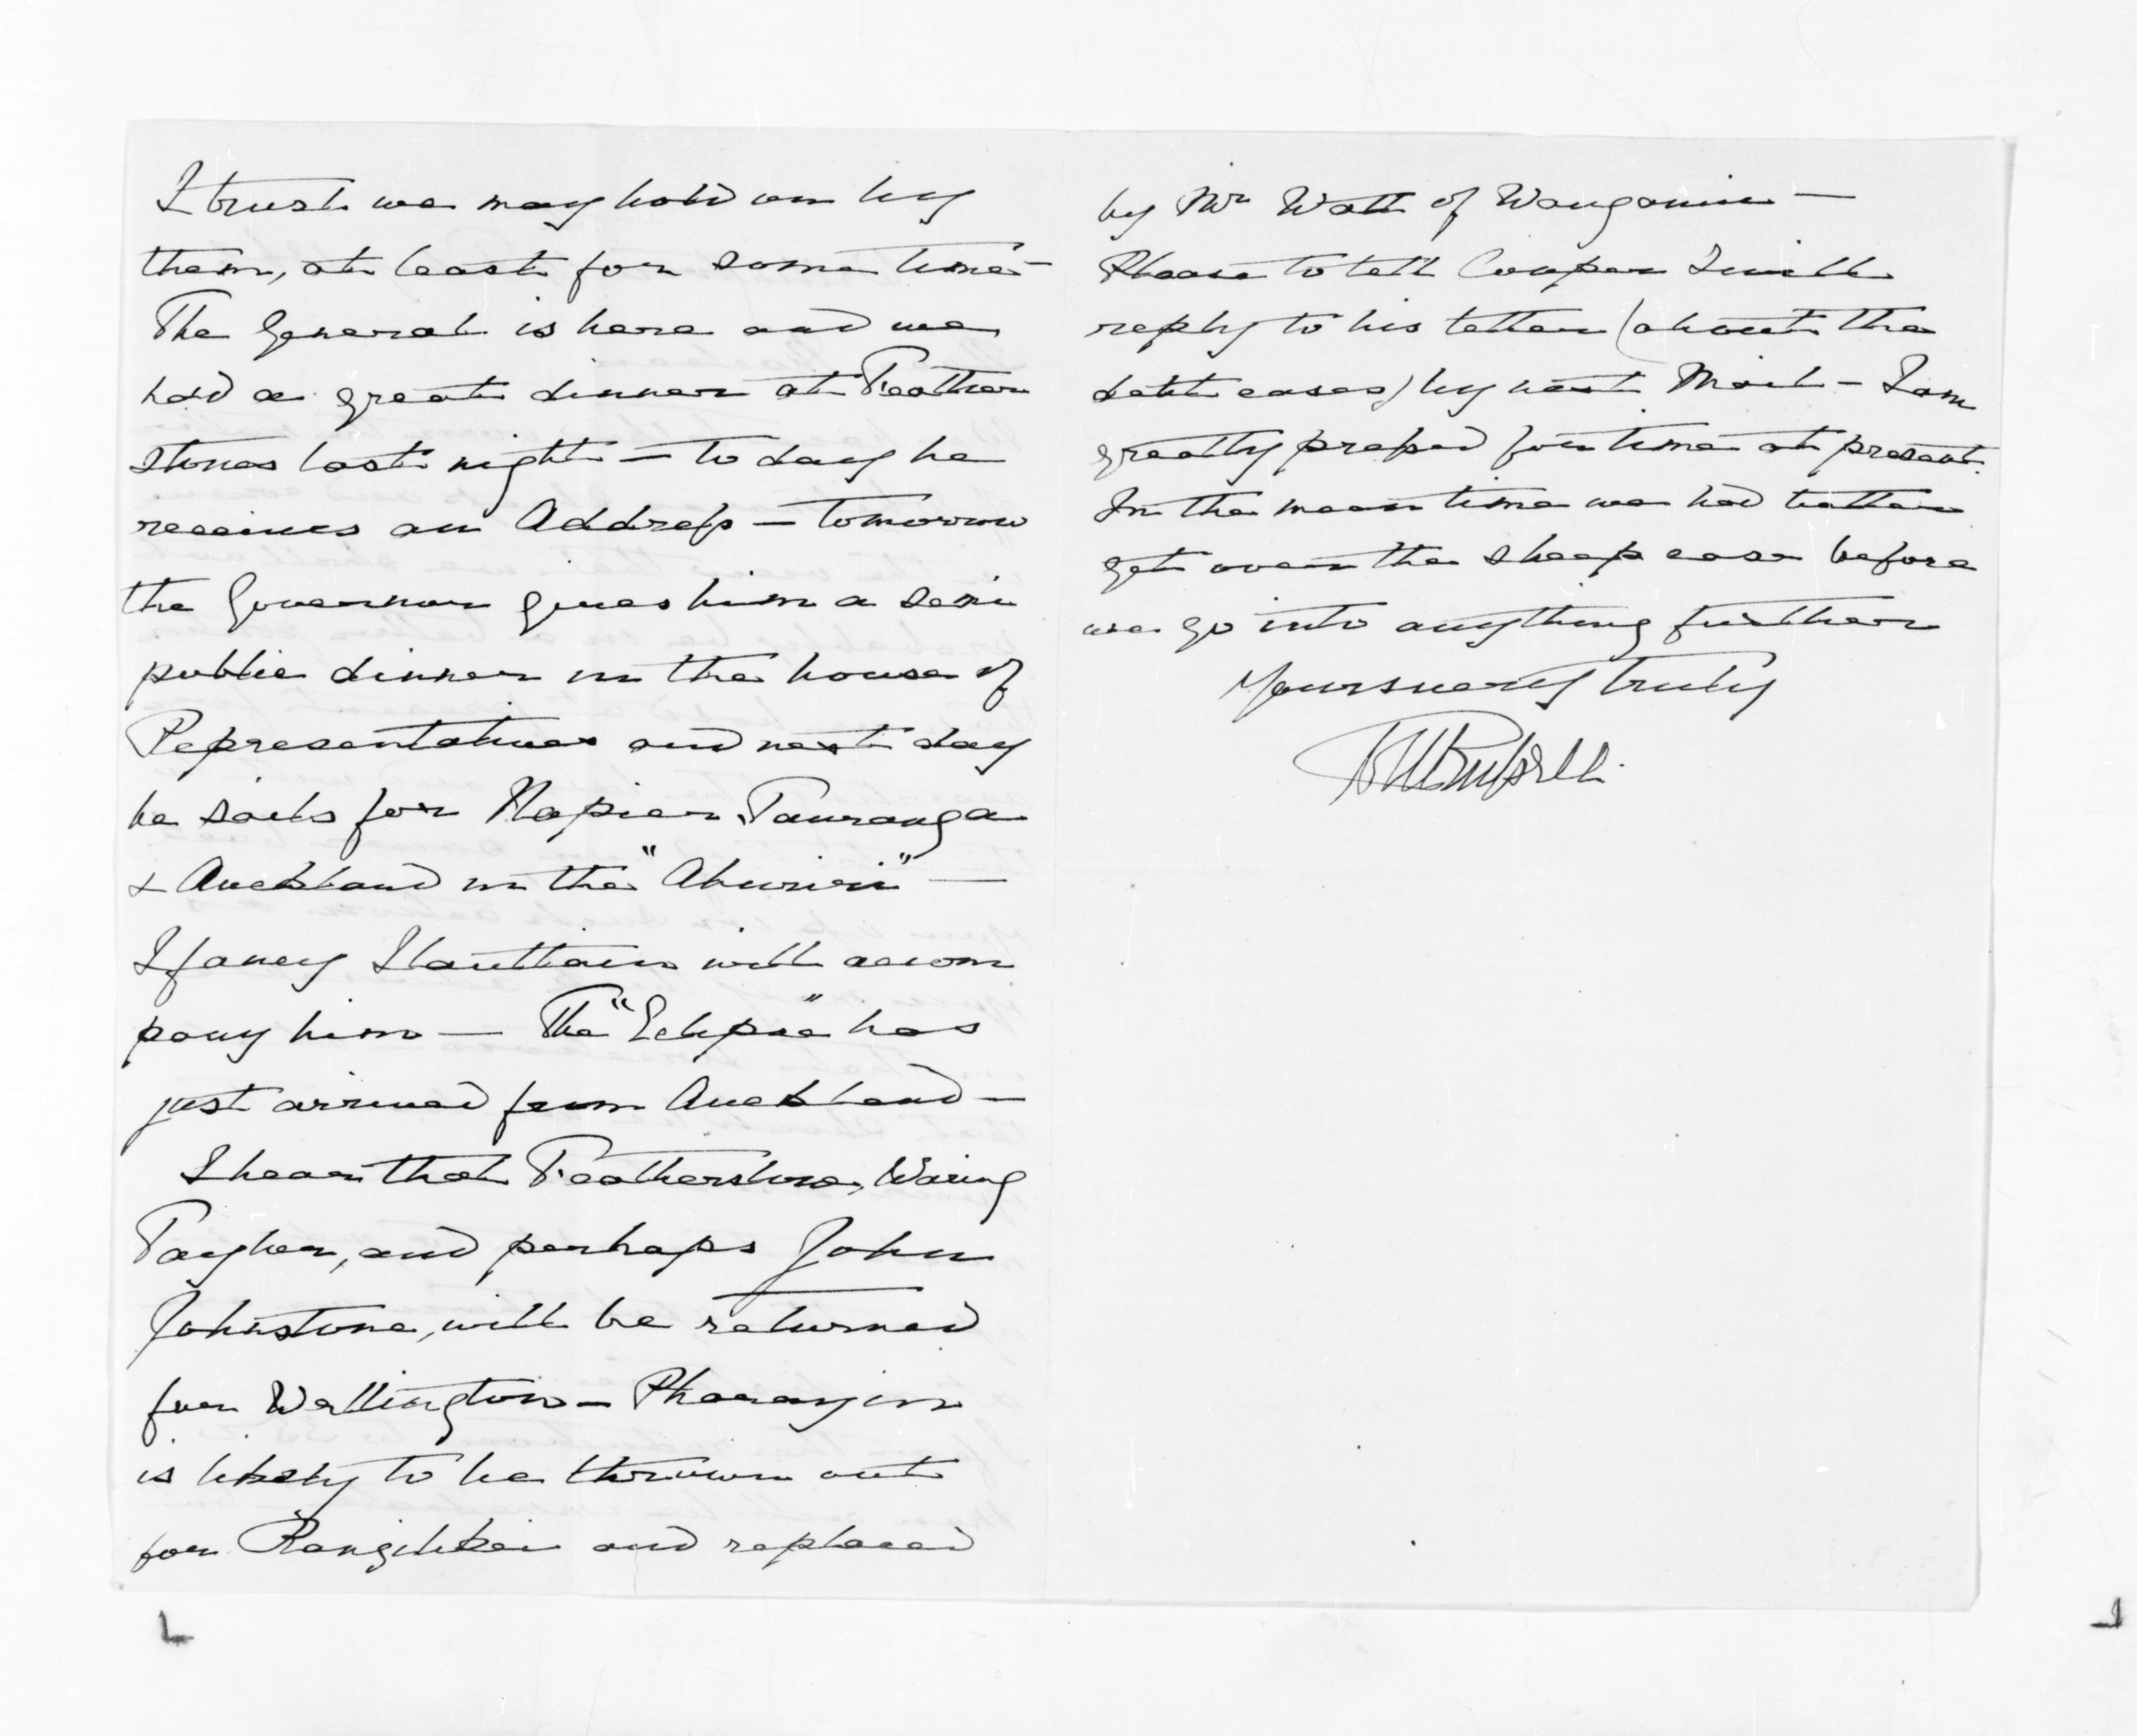 I trust we may hold on by
them, at least for some time -
The General is here and we
had a great dinner at Feather
stones last night - to day he
receives an Address - tomorrow
the Governor gives him a semi
public dinner in the house of
Representatives and next day
he sails for Napier, Tauranga
& Auckland in the "Ahuriri" -
I fancy Haultain will accom
pany him - The "Eclipse" has
just arrived from Auckland -
I hear that Featherstone, Waring
Taylor, and perhaps John
Johnstone, will be returned
for Wellington - Pharazyn
is likely to be thrown out
for Rangitikei and replaced
by Mr Watt of Wanganui -
Please to tell Cooper I will
reply to his letter (about the
debt cases) by next Mail - I am
greatly pressed for time at present.
In the mean time we had better
get over the sheep case before
we go into anything further
Yours very truly